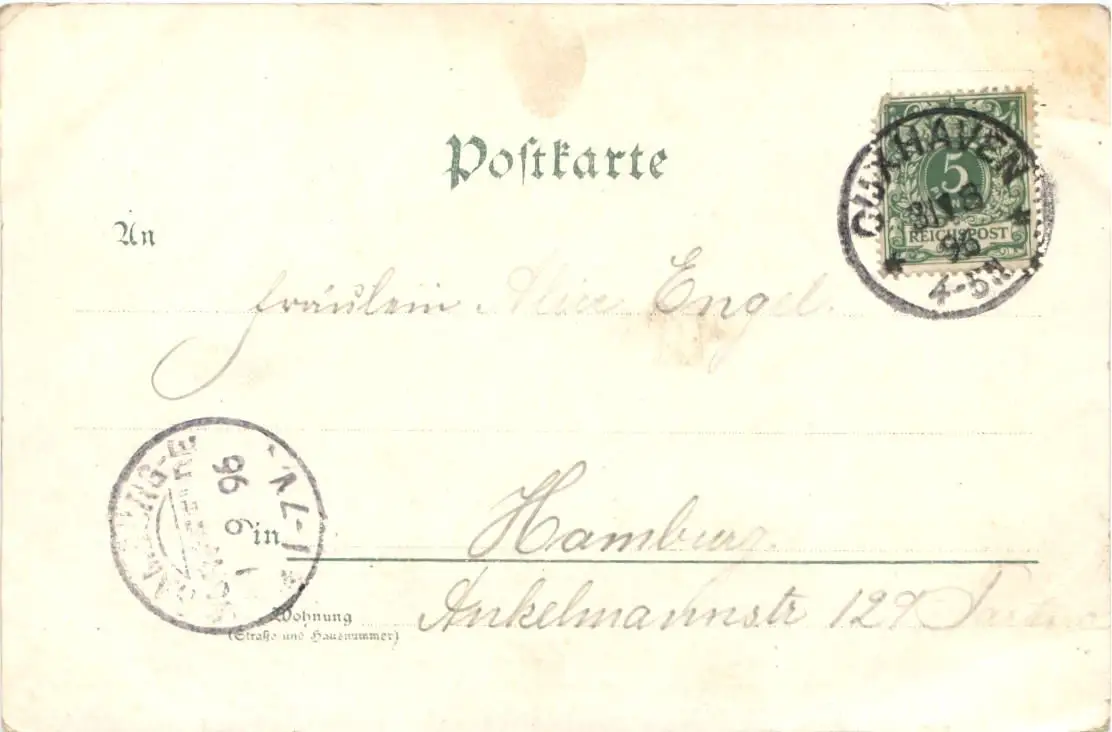 Postkarte
CUXHAVEN
5
31 8
REICHSPOST
96
4-5N
An
Fräulein Alice Engel.
96
9
1
in Hamburg
Wohnung
(Straße und Hausnummer)
Ankelmannstr 129